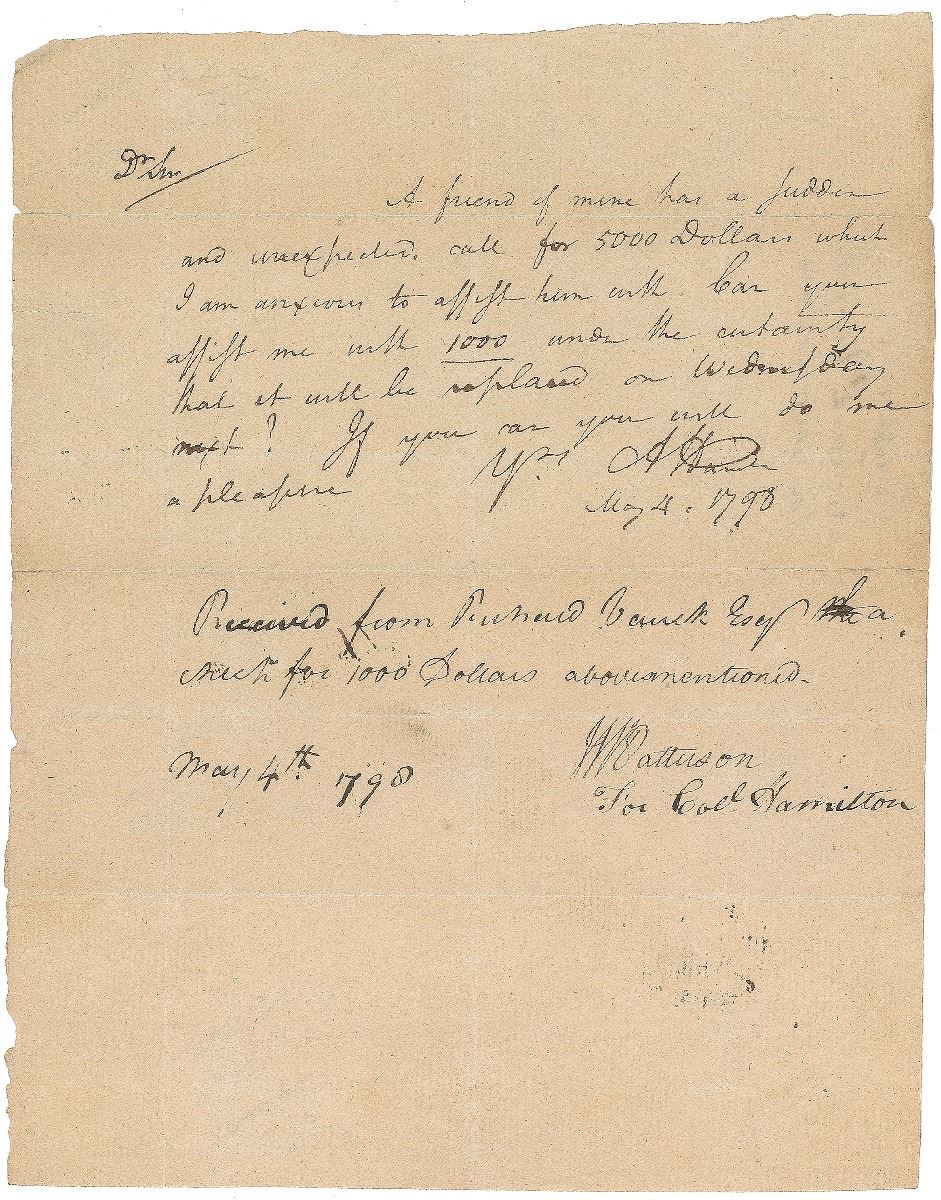 Dr Sir
A friend of mine has a sudden
and unexpected call for 5000 Dollars which
I am anxious to assist him with. Can you
assist me with 1000 under the certainty
that it will be replaced on Wednesday
next? If you can you will do me
a pleasure Yrs A Ham
May 4. 1798
Received from Richard Varick Esqr the a
check for 1000 Dollars abovementioned.
May 4th 1798
W Patterson
For Col Hamilton